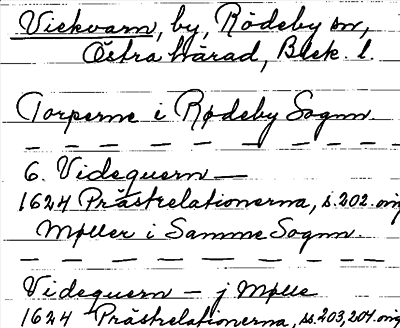 Viekvarn, by, Rödeby sn,
Östra härad, Blek. l.
Torperne i Rødeby Sognn.
6. Videquern —
1624 Prästrelationerna, s. 202. orig
Møller i Samme Sognn.
Videquern — j Mølle
1624 Prästrelationerna, ss. 203, 204. orig